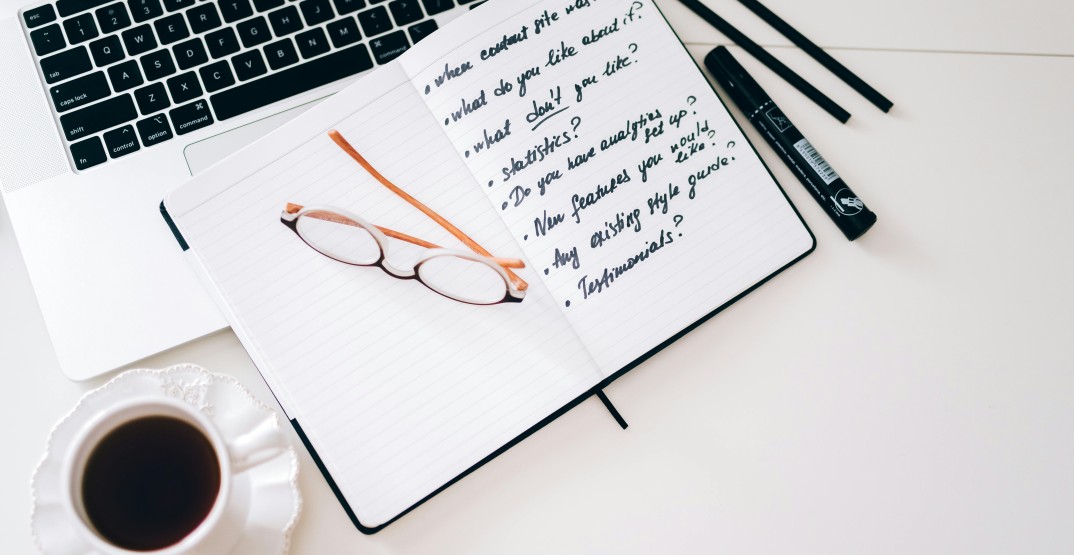 esc
tab Q W E R T
caps lock A S D F G H J
shift Z X C V B N M
fn control option command command
• when content site was
• what do you like about it?
• what don't you like?
• statistics?
• Do you have analytics
set up?
• New features you would
like?
• Any existing style guide?
• Testimonials?